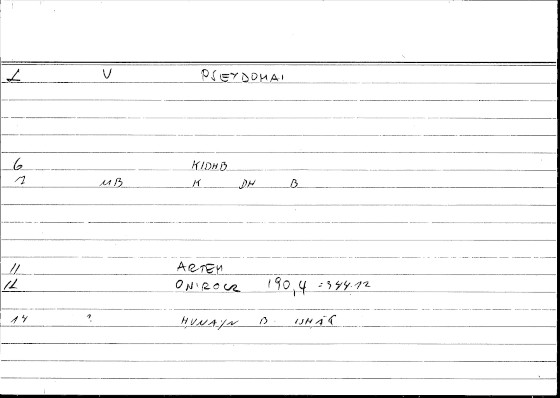 L V PSEYDOMAI
6 KIDHB
1 MB K DH B
11 ARTEM
12 ONIROCR 190,4 =344.12
14 ? HUNAYN B ISHĀQ